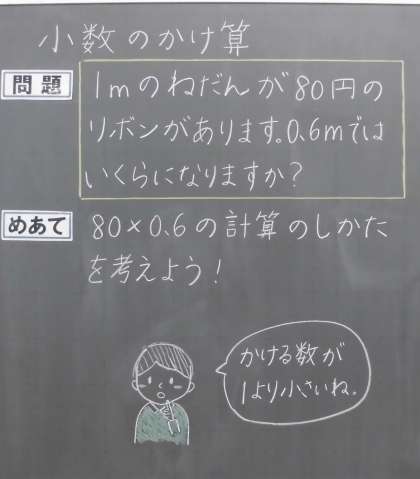 小数のかけ算
問題
1mのねだんが80円の
リボンがあります。0.6mでは
いくらになりますか?
めあて
80×0.6の計算のしかた
を考えよう!
かける数が
1より小さいね。